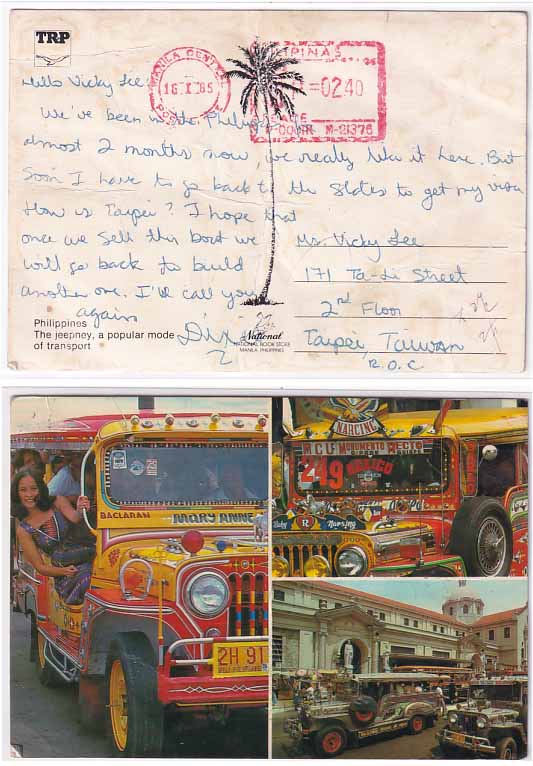 TRP
MANILA CENTRAL
16 X 85
PILIPINAS
=0240
M-21376
Hello Vicky Lee
We've been in the Philippines
almost 2 months now, we really like it here. But
soon I have to go back to the States to get my visa
How is Taipei? I hope that
once we sell this boat we
will go back to build
another one. I'll call you
again
Philippines
The jeepney, a popular mode
of transport
National
NATIONAL BOOK STORE
MANILA PHILIPPINES
Ms. Vicky Lee
171 Ta-Li Street
2nd Floor
Taipei, Taiwan
R.O.C
BACLARAN
MARY ANNE
2H 91
NARCING
RCU MONUMENTO RECTO
249 MEXICO
Baby R Nursing